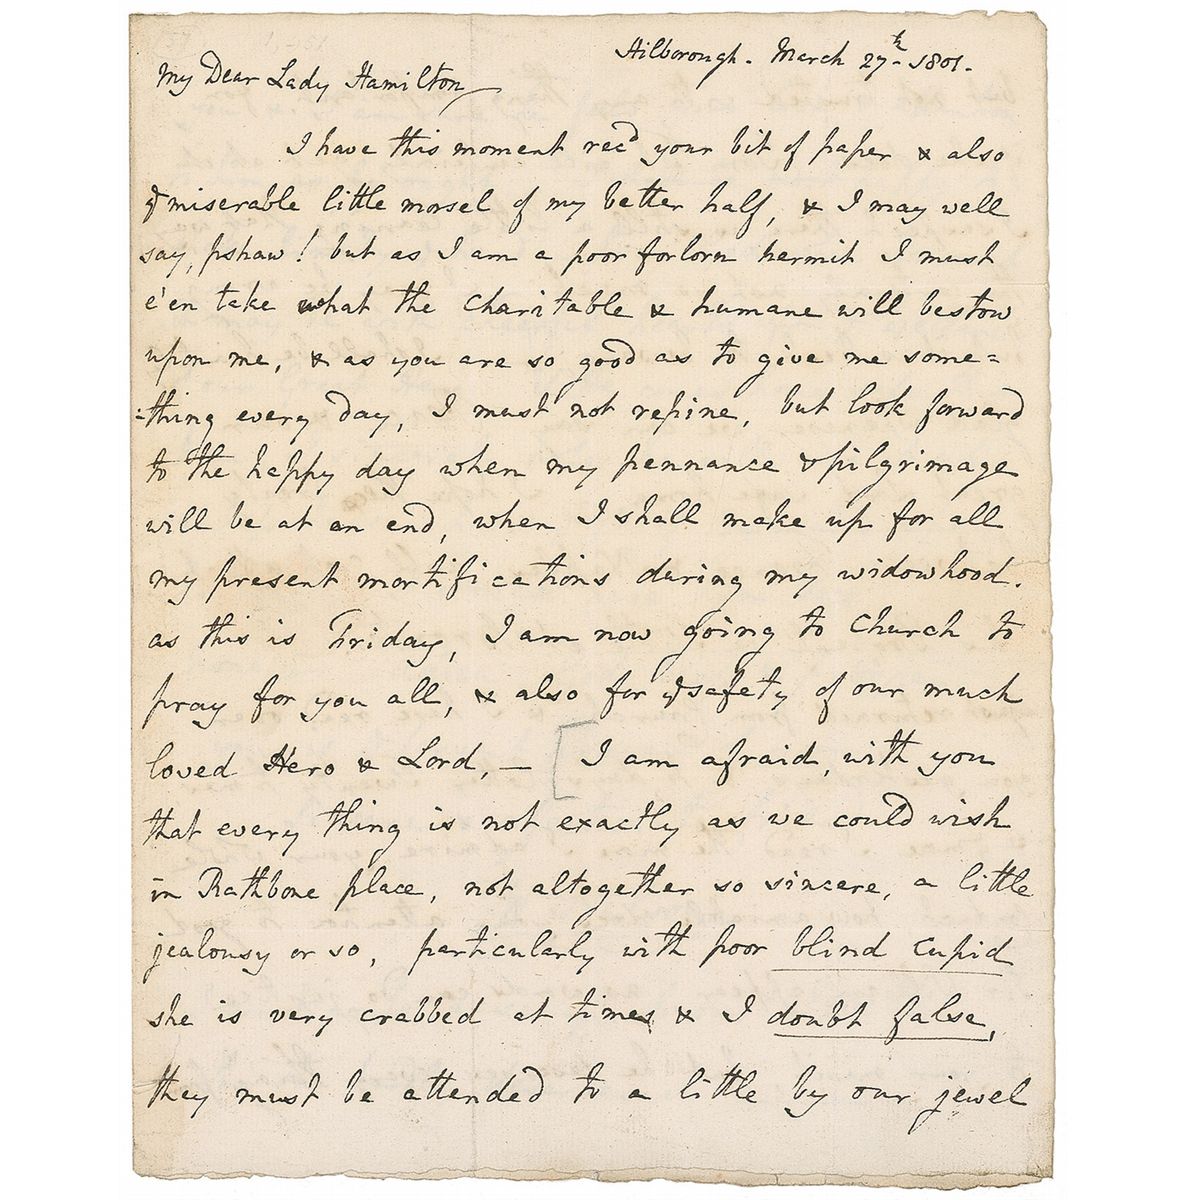 Hilborough. March 27th 1801.
My Dear Lady Hamilton
I have this moment recd your bit of paper & also
ye miserable little morsel of my better half, & I may well
say, pshaw! but as I am a poor forlorn hermit I must
e'en take what the charitable & humane will bestow
upon me, & as you are so good as to give me some=
=thing every day, I must not repine, but look forward
to the happy day when my pennance & pilgrimage
will be at an end, when I shall make up for all
my present mortifications during my widowhood.
as this is Friday, I am now going to church to
pray for you all, & also for ye safety of our much
loved Hero & Lord, — [ I am afraid, with you
that every thing is not exactly as we could wish
in Rathbone place, not altogether so sincere, a little
jealousy or so, particularly with poor blind Cupid
she is very crabbed at times & I doubt false,
they must be attended to a little by our jewel